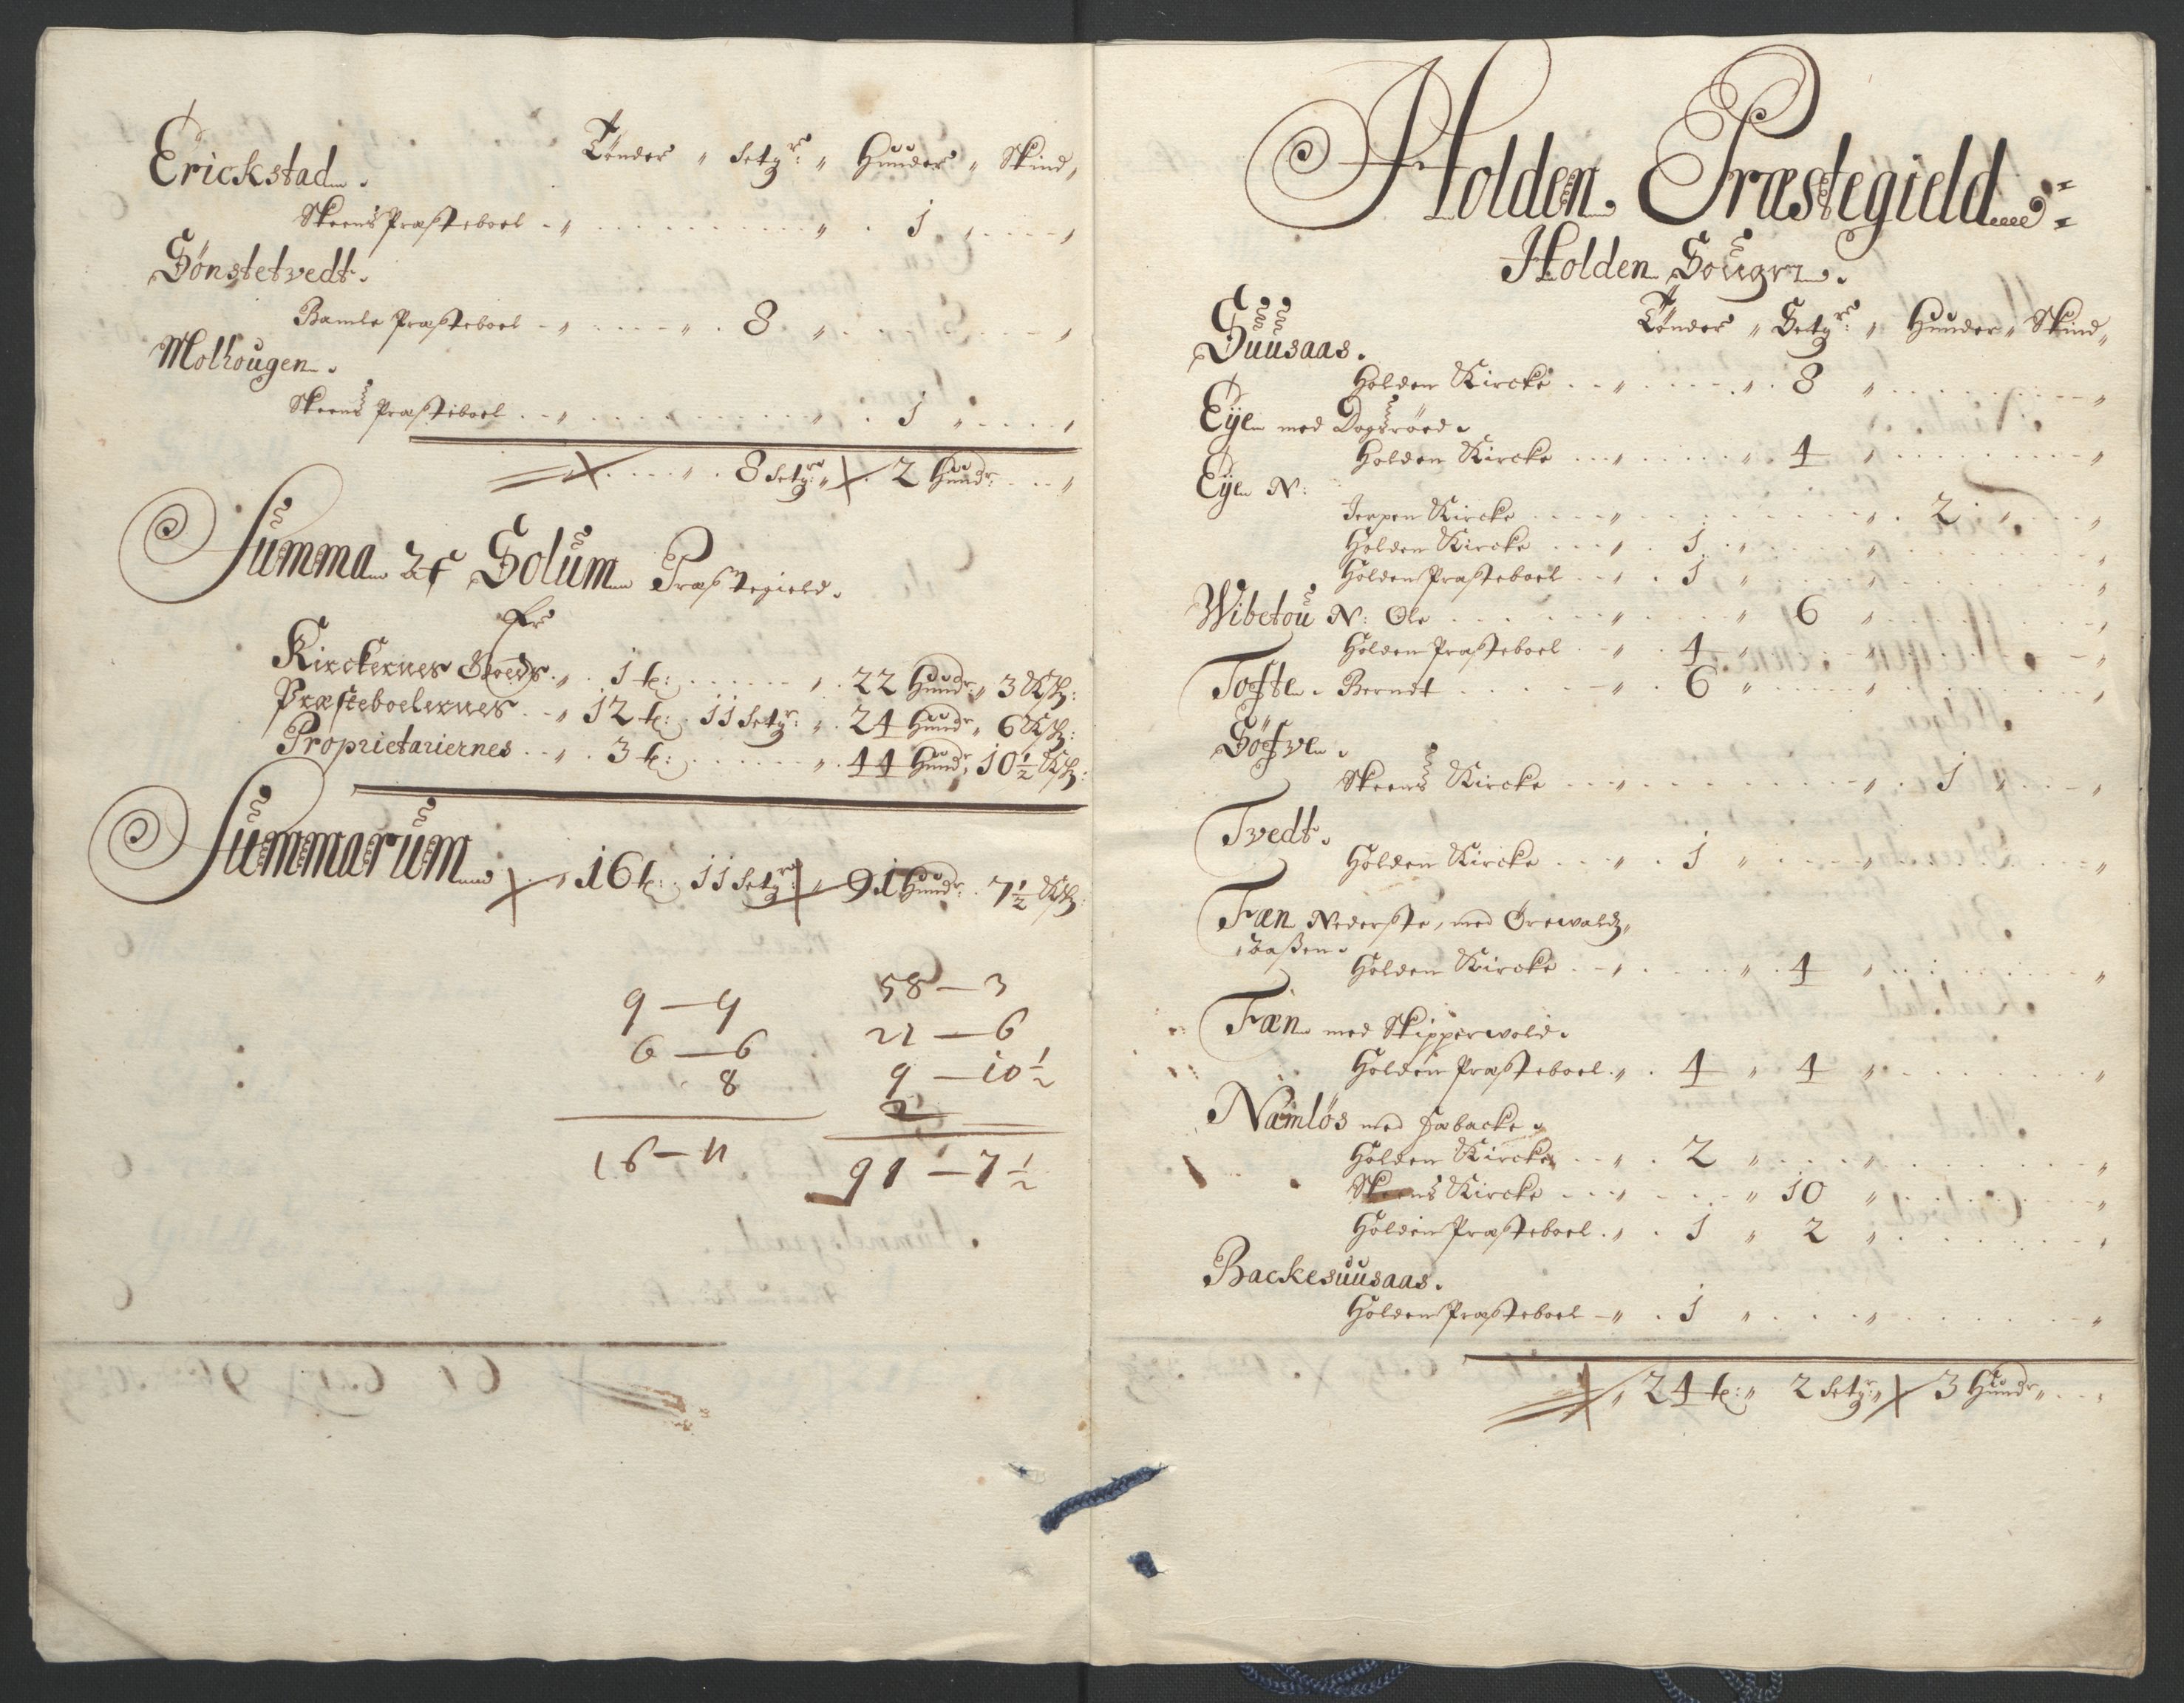 Tønder „ Setgr: „ Hunder „ Skind „
Erickstad.
Skeens Præsteboel - „ . . . „ . 1 „ . . „
Sönstetvedt.
Bamle Præsteboel - „ . . „ . 8 „ . . . „
Molhougen.
Skeens Præsteboel . . „ . . . „ . 1 „ . . „
„ . 8 Setgr: „ 2 Hundr: . . „
Summa af Solum Præstegield.
Er
Kirckernes Goeds . „ . 1 t: . . . „ . 22 Hundr: „ 3 Sk:
Præsteboelernes . . „ 12 t: . 11 Setgr: „ . 24 Hundr „ 6 Sk:
Proprietariernes . . „ . 3 t: . . . „ . 44 Hundr, 10½ Sk:
Summarum „ 16 t: . 11 Setgr: „ 91 Hundr: . 7½ Sk:
9 — 9
6 — 6
8
16 — 11
58 — 3
21 — 6
9 — 10½
2
91 — 7½
Holden Præstegield:
Holden Sougn.
Tønder „ Setgr: „ Hunder „ Skind „
Suusaas.
Holden Kircke . . „ . . „ . 8 „ . . . „
Eye med Dogsröed.
Holden Kircke . . „ . . „ . 4 „ . . . „
Eye N:
Jerpen Kircke . . „ . . . „ . 2 . „ . . „
Holden Kircke . . „ . 1 . „ . . „ . . . „
Holden Præsteboel . . „ . 1 „ . . „ . . . „
Wibetou N: Ole . . . „ . . „ 6 „ . . . „
Holden Præsteboel . „ . 4 „ . . „ . . . „
Tofte. Berndt . . . „ . 6 „ . . „ . . . „
Söfve.
Skeens Kircke . . „ . . . „ . 1 „ . . „
Tvedt.
Holden Kircke . . „ . 1 „ . . „ . . . „
Fæn Nederste, med Örewaldz,
aaßen.
Holden Kircke . . „ . . „ . 4 „ . . . „
Fæn med Skipperwold.
Holden Præsteboel . „ . 4 „ 4 „ . . . „
Næmlös med Habacke.
Holden Kircke . . „ . 2 „ . . „ . . . „
Skeens Kircke . . „ . . „ 10 „ . . . „
Holden Præsteboel . „ . 1 „ 2 „ . . . „
Backesuusaas.
Holden Præsteboel - „ . 1 „ . . „ . . . „
„ 24 t: „ 2 Setgr: „ 3 Hundr „ . . „